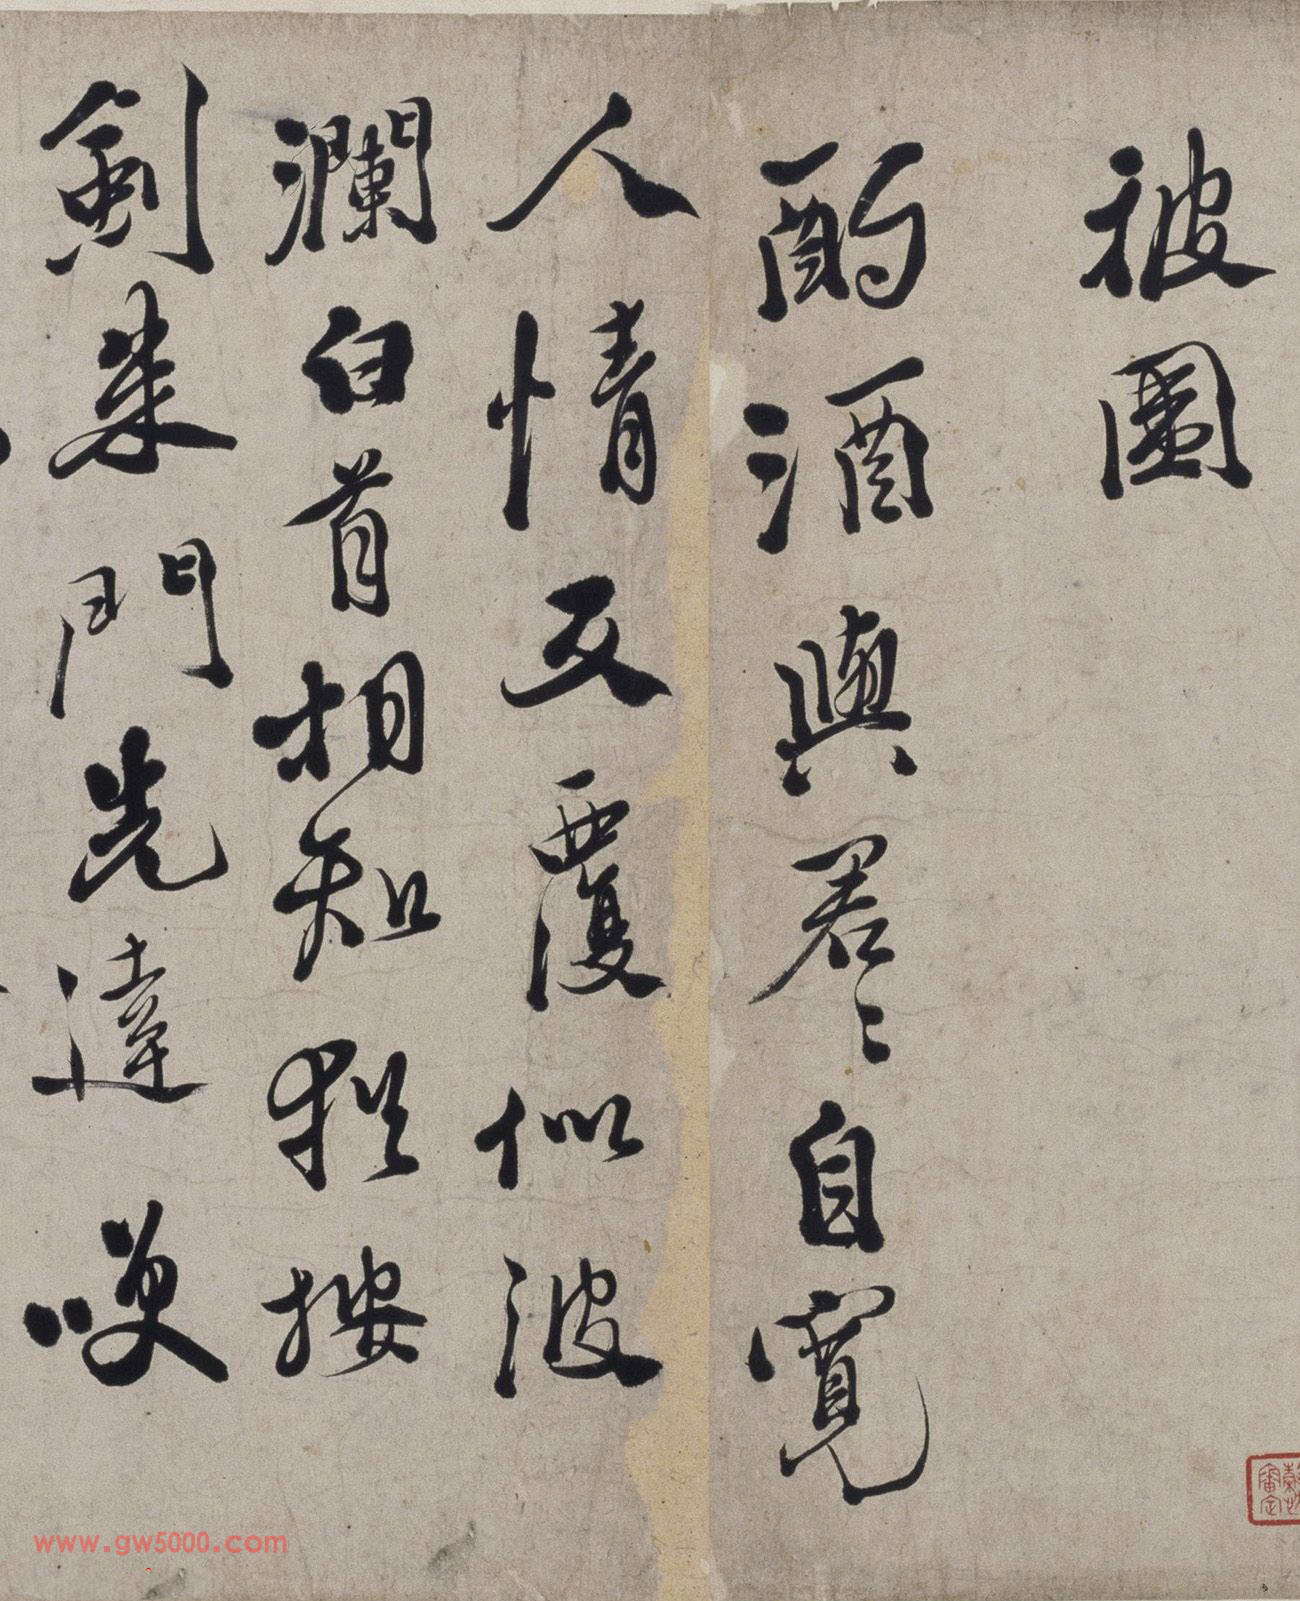 被圖
酌酒與君〻自寬
人情反覆似波
瀾白首相知猶按
劍朱門先達咲
www.gw5000.com